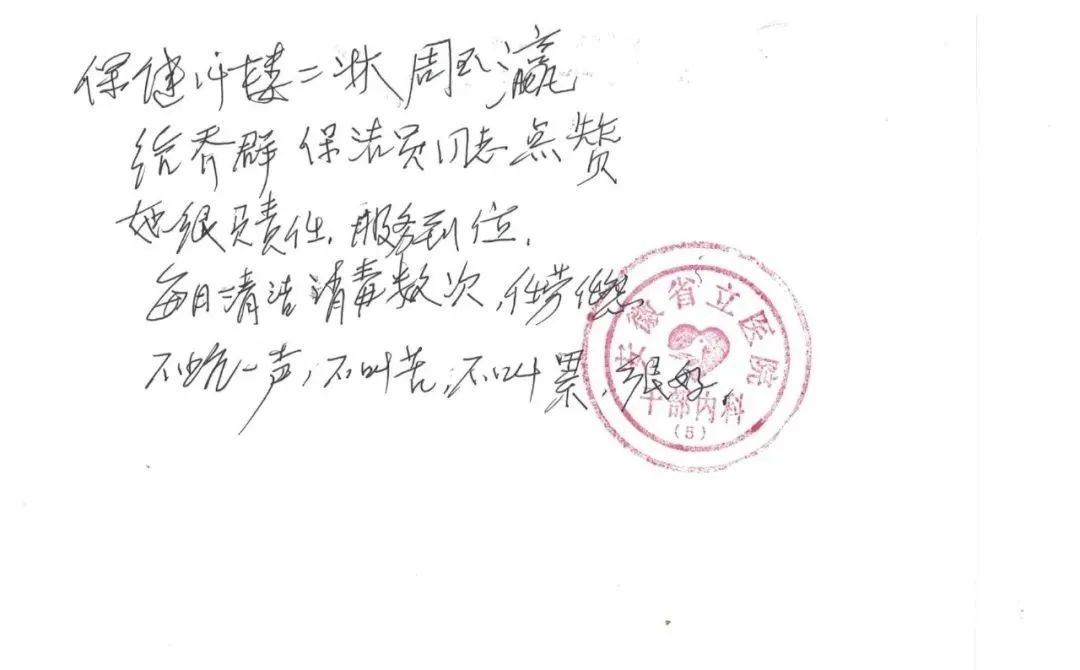 保健 楼二 周 瀛
给乔群 保洁员同志点赞
她很负责任,服务到位,
每日清洁消毒数次,任劳任怨,
不吭一声,不叫苦,不叫累,很好
安徽省立医院
干部内科
(5)